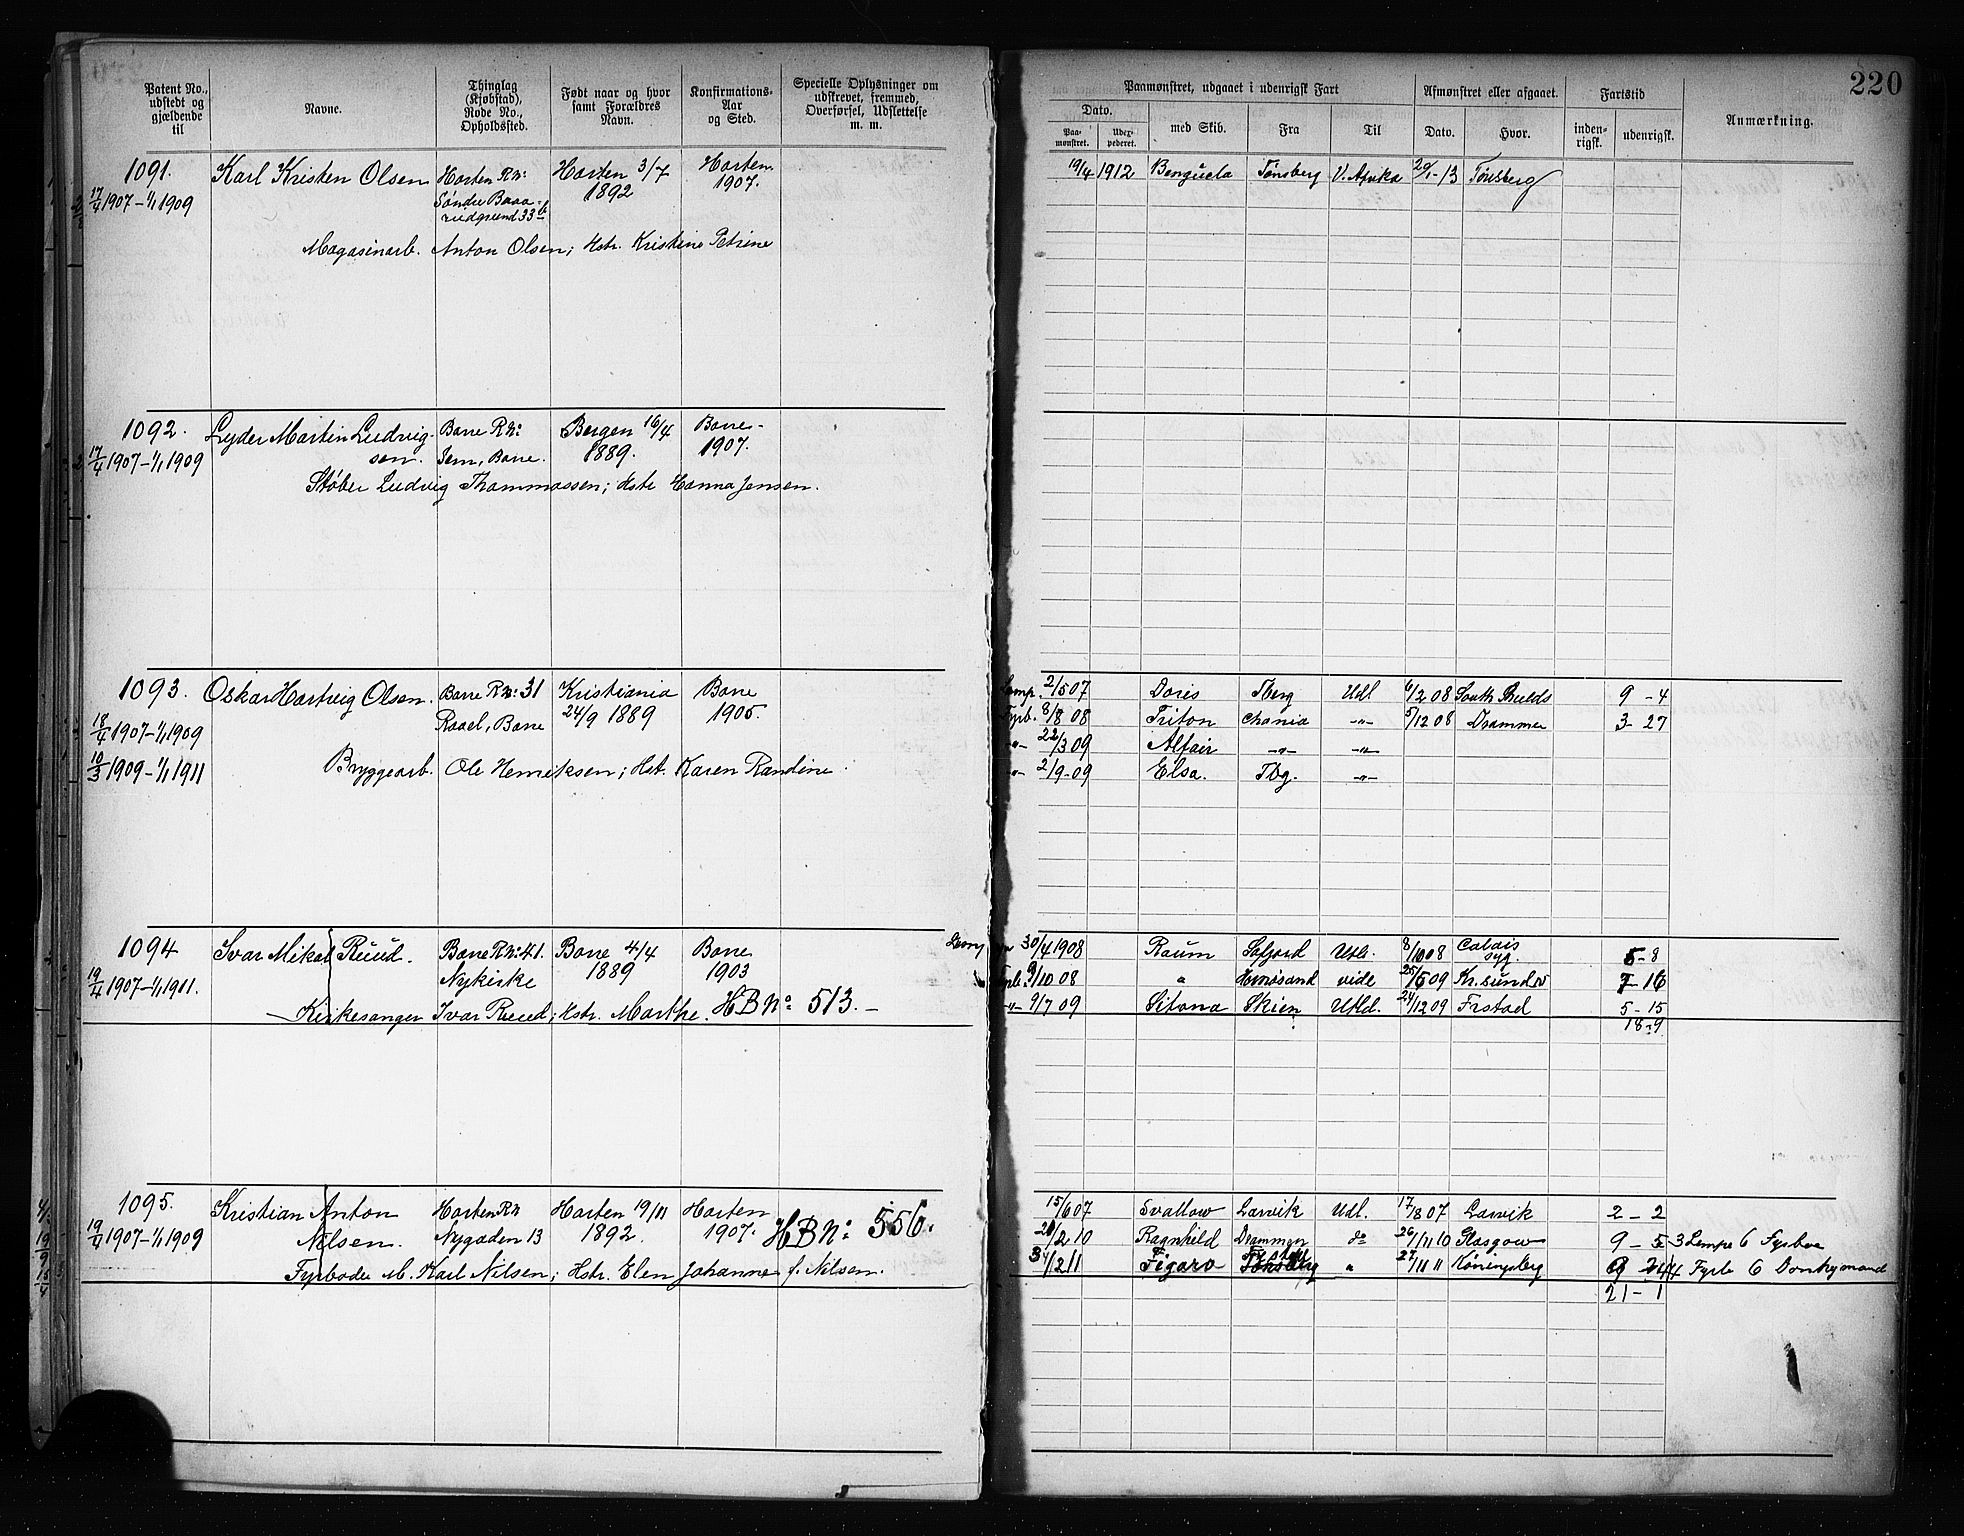 220
Patent No., udstedt og gjældende til
Navne.
Thinglag (Kjøbstad), Rode No., Opholdssted.
Født naar og hvor samt Forældres Navn.
Konfirmations-Aar og Sted.
Specielle Oplysninger om udskrevet, fremmed, Overførsel, Udslettelse m. m.
Paamønstret, udgaaet i udenrigsk Fart
Afmønstret eller afgaaet.
Fartstid
Anmærkning.
Dato.
Paamønstret.
med Skib.
Fra
Til
Dato.
Hvor.
indenrigsk.
udenrigsk.
1091. Karl Kristen Olsen Horten R№: Horten 3/7 Horten 19/4 1912 Benguela Tønsberg V. Afrika 20/1-13 Tønsberg
17/4 1907-1/1 1909 Søndre 1892 1907.
33b
Magasinarb. Anton Olsen; Hstr. Kristine Petrine
1092. Lyder Martin Ludvig- Borre R№: Bergen 16/4 Borre
17/4 1907-1/1 1909 sen. Sem, Borre. 1889. 1907.
Støber Ludvig Thommassen; Hstr Hanna Jensen.
1093. Oskar Hartvig Olsen. Borre R№: 31 Kristiania Borre Lemp. 2/5 07 Doris Tberg Udl 6/2 08 South Shields 9 - 4
18/4 1907-1/1 1909 Raael, Borre 24/9 1889 1905. Fyrb. 8/8 08 Triton Chania -"- 5/12 08 Drammen 3- 27
-"- 22/3 09 Altair -"- -"-
10/3 1909-1/1 1911 Bryggearb. Ole Henriksen; Hst. Karen Randine -"- 2/9-09 Elsa. Tbg. -"-
1094 Ivar Mikal Ruud. Borre R№: 41. Borre 4/4 Borre 30/4 1908 Raum Utl. 8/10 08 Calais syg. 5-8
19/4 1907-1/1 1911. Nykirke 1889 1903 9/10 08 " Hernøsand vide 25/5 09 Kr.sund 7-16
Kirkesanger Ivar Ruud; Hstr. Marthe. HB№: 513.- -"- 9/7 09 Sitona Skien Utld. 24/12 09 Frstad 5-15
18-9
1095. Kristian Anton Horten R№ Horten 19/11 Horten HB№: 556. 15/6 07 Svallow Larvik Udl. 17/8 07 Larvik 2 - 2
19/4 1907-1/1 1909 Nilsen. Nygaden 13 1892. 1907. 2 10 Ragnhild Drammen do 26/11 10 Glasgow 9 - 5 3 Lempe 6 Fyrbøe
Fyrbøder M. Karl Nilsen; Hstr. Elen Johanne f. Nilsen. 2 11 Figaro " 27/11 11 Køningsberg 4 Fyrb 6 Donkymand
21-1